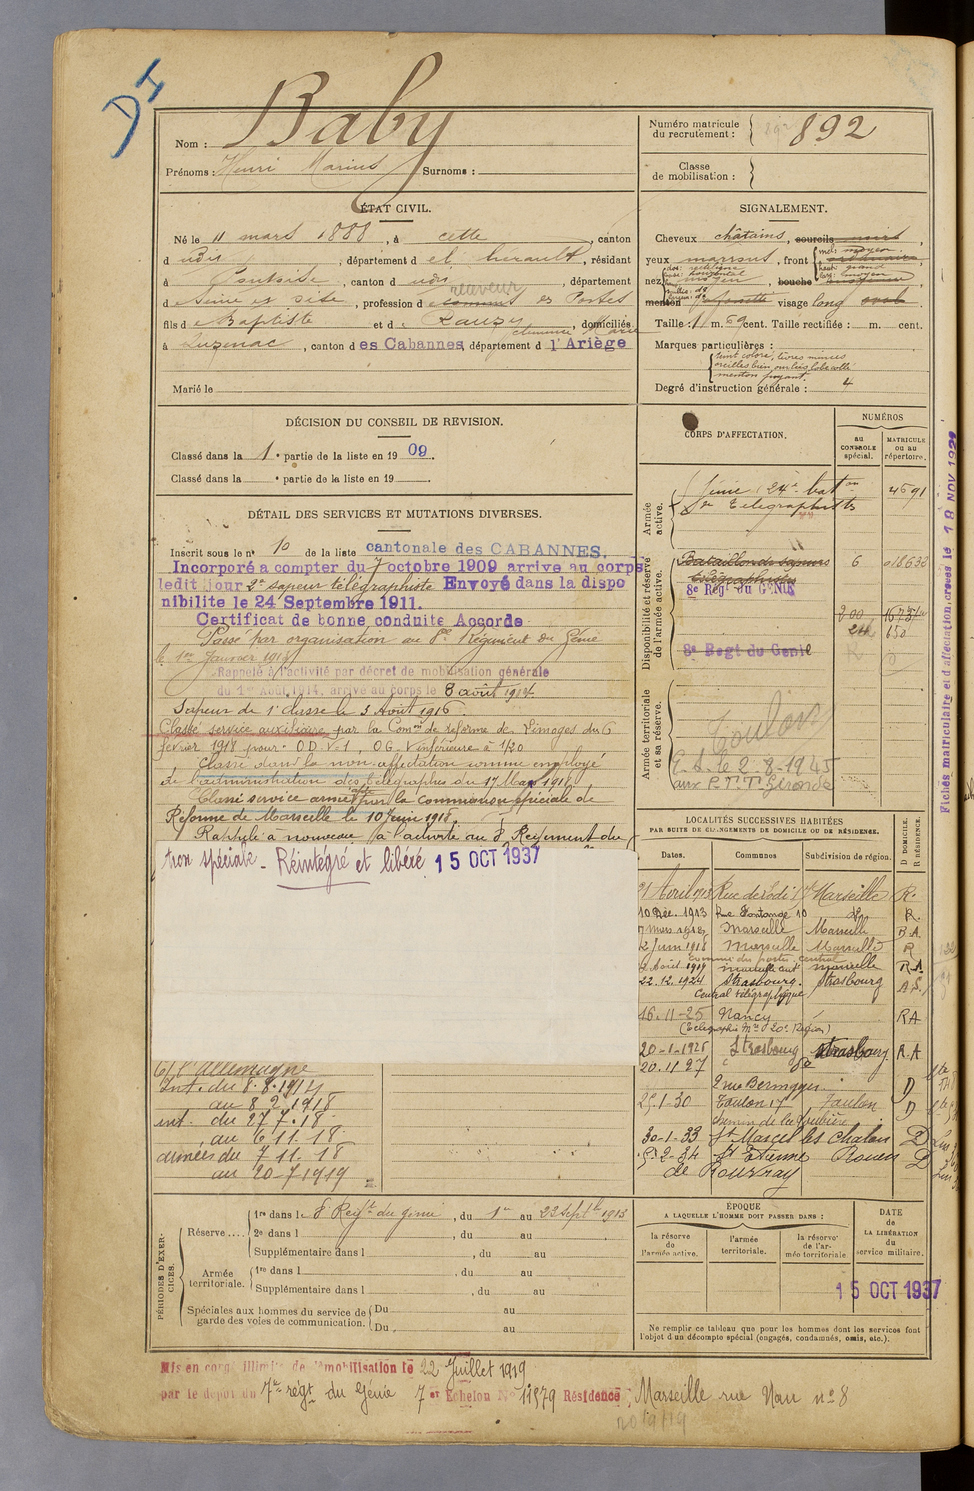 DI
Nom : Baby
Prénoms : Henri Marius Surnoms :
Numéro matricule du recrutement : 892
Classe de mobilisation :
ÉTAT CIVIL.
Né le 11 mars 1888, à Cette, canton
d udit, département d e l'hérault, résidant
à Pontoise, canton d udit, département
d e Seine et Oise, profession d e commis receveur es Postes
fils d e Baptiste et d e Rauzy Clémence Marie, domiciliés
à Luzenac, canton d es Cabannes, département d l'Ariège
Marié le
SIGNALEMENT.
Cheveux châtains, sourcils noirs,
yeux marrons, front
nez moyen, bouche
menton visage long
Taille : 1 m. 69 cent. Taille rectifiée : m. cent.
Marques particulières :
teint coloré, lèvres minces
menton fuyant.
Degré d'instruction générale : 4
DÉCISION DU CONSEIL DE REVISION.
Classé dans la 1e partie de la liste en 1909.
Classé dans la e partie de la liste en 19 .
DÉTAIL DES SERVICES ET MUTATIONS DIVERSES.
Inscrit sous le n° 10 de la liste cantonale des CABANNES.
Incorporé a compter du 7 octobre 1909 arrive au corps
ledit jour 2e sapeur télégraphiste Envoyé dans la dispo
nibilite le 24 Septembre 1911.
Certificat de bonne conduite Accordé
Passé par organisation au 8me Régiment du Génie
le 1er Janvier 1913
Rappelé à l'activité par décret de mobilisation générale
du 1er Août 1914, arrive au corps le 8 août 1914
Sapeur de 1e classe le 3 Août 1916
Classé service auxiliaire par la Comon de réforme de Limoges du 6
février 1918 pour : O D V=1, O G V inférieure à 1/20
Classé dans la non-affectation comme employé
de l'administration des télégraphes du 17 Mars 1918
Classé service armé par la Commission spéciale de
Réforme de Marseille le 10 Juin 1918.
Rappelé à nouveau à l'activité au 8e Régiment du
tion spéciale - Réintégré et libéré 15 OCT 1937
c/ l'Allemagne
Int. du 8.8.1914
au 8.2.1918
int. du 27.7.18
au 6.11.18
armées du 7.11.18
au 20-7-1919
CORPS D'AFFECTATION.
NUMÉROS
au CONTROLE spécial.
MATRICULE ou au répertoire.
Armée active.
Génie 24e baton
de Télégraphistes
4691
Disponibilité et réserve de l'armée active.
Bataillon de sapeurs
télégraphistes
6
8e Régt du GENIE
200
8e Regt du Genie
650
Armée territoriale et sa réserve.
Toulon
E.S. le 2-8-1945
aux P.T.T. Gironde
Fiches matriculaire et d'affectation créées le 18 NOV 192
LOCALITÉS SUCCESSIVES HABITÉES
PAR SUITE DE CHANGEMENTS DE DOMICILE OU DE RÉSIDENCE.
Dates.
Communes
Subdivision de région.
D DOMICILE. R RÉSIDENCE.
21 Avril 1913 Rue de Lodi Marseille R.
10 Déc. 1913 Rue Fontange 10 do R.
7 Mars 1918 Marseille Marseille R.A.
2 Juin 1918 Marseille Marseille R
Août 1919 Marseille R.A
22.12.1924 Strasbourg. Strasbourg
Central télégraphique
16.11-25 Nancy RA
20-1-1926 Strasbourg Strasbourg R.A
20.11.27 do
D
25.1-30 Toulon 17 Toulon D
Chemin de la Loubière
30-1-33 St Marcel les Chalon D
2-34 St Etienne Rouen D
de Rouvray
PÉRIODES D'EXERCICES.
Réserve.... 1re dans le 8 Regt du génie, du 1er au 23 septbre 1913
2e dans l , du au
Supplémentaire dans l , du au
Armée territoriale. 1re dans l , du au
Supplémentaire dans l , du au
Spéciales aux hommes du service de garde des voies de communication. Du au
Du au
ÉPOQUE
A LAQUELLE L'HOMME DOIT PASSER DANS :
la réserve de l'armée active.
l'armée territoriale.
la réserve de l'armée territoriale
DATE de LA LIBÉRATION du service militaire.
15 OCT 1937
Ne remplir ce tableau que pour les hommes dont les services font
l'objet d'un décompte spécial (engagés, condamnés, omis, etc.).
Mis en congé illimité de démobilisation le 22 Juillet 1919
par le dépot du 7e régt du Génie 7 er Echelon N° 11579 Résidence : Marseille rue Nau n° 8